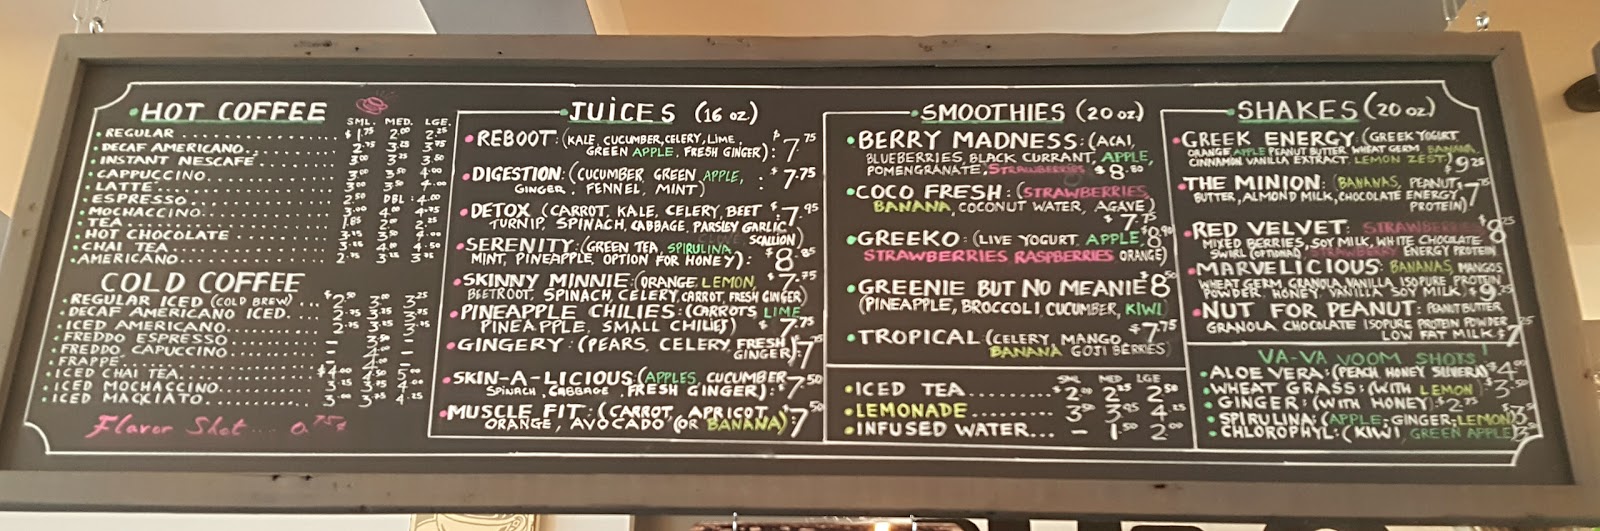 HOT COFFEE
SML. MED. LGE.
REGULAR $1.75 2.00 2.25
DECAF AMERICANO 2.75 3.25 3.75
INSTANT NESCAFE 3.00 3.25 3.50
CAPPUCCINO 3.00 3.50 4.00
LATTE 3.00 3.50 4.00
ESPRESSO 2.50 DBL: 4.00
MOCHACCINO 3.00 4.00 4.75
TEA 1.85 2.00 2.25
HOT CHOCOLATE 3.25 3.50 4.00
CHAI TEA 3.25 4.00 4.50
AMERICANO 2.75 3.25 3.75
COLD COFFEE
REGULAR ICED (COLD BREW) $2.50 3.00 3.25
DECAF AMERICANO ICED 2.75 3.25 3.75
ICED AMERICANO 2.75 3.25 3.75
FREDDO ESPRESSO – 3.50 –
FREDDO CAPUCCINO – 4.00 –
FRAPPE – 4.00 –
ICED CHAI TEA $4.00
ICED MOCHACCINO 3.25 3.75 4.25
ICED MACKIATO 3.00 3.75 4.25
Flavor Shot... 0.75¢
JUICES (16 OZ.)
REBOOT: (KALE, CUCUMBER, CELERY, LIME,
GREEN APPLE, FRESH GINGER): $7.75
DIGESTION: (CUCUMBER GREEN APPLE,
GINGER, FENNEL, MINT) : $7.75
DETOX (CARROT, KALE, CELERY, BEET $7.95
TURNIP, SPINACH, CABBAGE, PARSLEY GARLIC
SCALLION)
SERENITY: (GREEN TEA, SPIRULINA
MINT, PINEAPPLE, OPTION FOR HONEY): $8.85
SKINNY MINNIE: (ORANGE, LEMON, $7.75
BEETROOT, SPINACH, CELERY, CARROT, FRESH GINGER)
PINEAPPLE CHILIES: (CARROTS, LIME
PINEAPPLE, SMALL CHILIES) $7.75
GINGERY: (PEARS, CELERY, FRESH
GINGER): 7.75
SKIN-A-LICIOUS: (APPLES, CUCUMBER
SPINACH, CABBAGE, FRESH GINGER): $7.50
MUSCLE FIT: (CARROT, APRICOT,
ORANGE, AVOCADO (OR BANANA) $7.50
SMOOTHIES (20 OZ.)
BERRY MADNESS: (ACAI,
BLUEBERRIES, BLACK CURRANT, APPLE,
POMENGRANATE, STRAWBERRIES $8.80
COCO FRESH: (STRAWBERRIES,
BANANA, COCONUT WATER, AGAVE)
$7.75
GREEKO: (LIVE YOGURT, APPLE, $8.90
STRAWBERRIES RASPBERRIES ORANGE)
GREENIE BUT NO MEANIE $8.50
(PINEAPPLE, BROCCOLI CUCUMBER, KIWI)
TROPICAL: (CELERY, MANGO, $7.75
BANANA GOJI BERRIES)
SML MED. LGE
ICED TEA $2.00 2.25 2.50
LEMONADE 3.50 3.95 4.25
INFUSED WATER... – 1.50 2.00
SHAKES (20 OZ.)
GREEK ENERGY: (GREEK YOGURT
ORANGE APPLE PEANUT BUTTER WHEAT GERM BANANA,
CINNAMON VANILLA EXTRACT LEMON ZEST) $9.25
THE MINION: (BANANAS, PEANUT
BUTTER, ALMOND MILK, CHOCOLATE ENERGY
PROTEIN) $7.75
RED VELVET: STRAWBERRIES $8.25
MIXED BERRIES, SOY MILK, WHITE CHOCOLATE
SWIRL (OPTIONAL) STRAWBERRY ENERGY PROTEIN
MARVELICIOUS: BANANAS, MANGOS
WHEAT GERM, GRANOLA, VANILLA, ISOPURE, PROTEIN
POWDER, HONEY, VANILLA SOY MILK) $9.25
NUT FOR PEANUT: PEANUT BUTTER
GRANOLA CHOCOLATE ISOPURE PROTEIN POWDER
LOW FAT MILK $7.25
VA-VA VOOM SHOTS
ALOE VERA: (PEACH HONEY $4.00
WHEAT GRASS: (WITH LEMON) $3.50
GINGER: (WITH HONEY) $2.75
SPIRULINA: (APPLE, GINGER, LEMON) $3.50
CHLOROPHYL: (KIWI, GREEN APPLE)